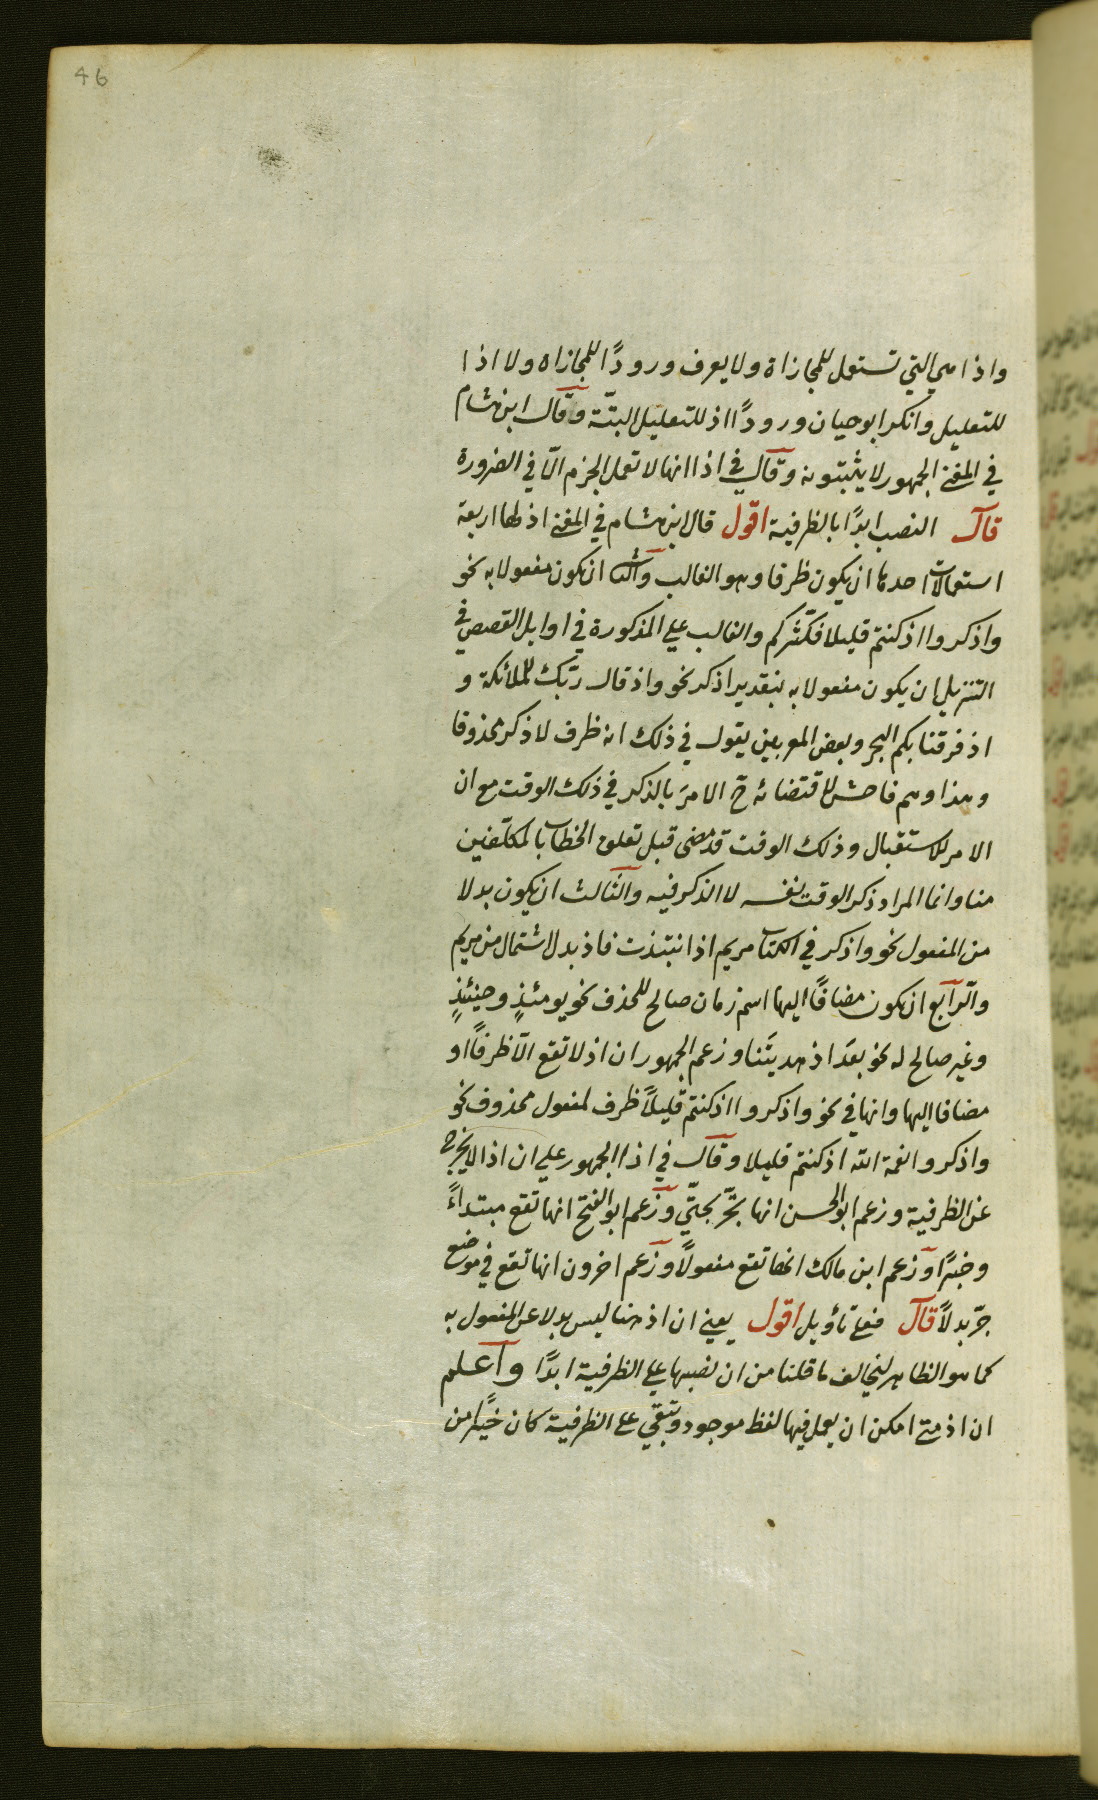 46
واذا هي التي تستعمل للمجازاة ولا يعرف ورودًا للمجازاه ولا اذا
للتعليل وانكر ابو حيان ورودًا اذ للتعليل البتّة وقال ابن هشام
في المغني الجمهور لا يثبتونه وقال في اذا انها لا تعمل الجزم الّا في الضرورة
قال النصب ابدًا بالظرفية اقول قال ابن هشام في المغني اذ لها اربعة
استعمالات احدها ان يكون ظرفا وهو الغالب والثا ان يكون مفعولا به نحو
واذكروا اذ كنتم قليلا فكثّركم والغالب علي المذكورة في اوايل القصص في
التنزيل ان يكون مفعولا به بتقدير اذكر نحو واذ قال ربّك للملائكة و
اذ فرقنا بكم البحر وبعض المعربين يقول في ذلك انه ظرف لاذكر محذوفا
وهذا وهم فاحش لاقتضائه ح الامرَ بالذكر في ذلك الوقت مع ان
الامر للاستقبال وذلك الوقت قد مضى قبل تعلق الخطاب بالمكلّفين
منا وانما المراد ذكر الوقت نفسه لا الذكر فيه والثالث ان يكون بدلا
من المفعول نحو واذكر في الكتاب مريم اذ انتبذت فاذ بدل اشتمال من مريم
والرابع ان يكون مضافًا اليها اسم زمان صالح للحذف نحو يومئذٍ وحينئذٍ
وغير صالح له نحو بعدَ اذ هديتَنا وزعم الجمهور ان اذ لا تقع الّا ظرفًا او
مضافا اليها وانها في نحو واذكروا اذ كنتم قليلاً ظرف لمفعول محذوف نحو
واذكروا نعمة الله اذ كنتم قليلا وقال في اذا الجمهور علي ان اذا لا يخرج
عن الظرفية وزعم ابو الحسن انها تجّر بحتّي وزعم ابو الفتح انها تقع مبتداءً
وخبرًا وزعم ابن مالك انها تقع مفعولًا وزعم اخرون انها تقع في موضع
جرّ بدلاً قال فعلي تأويل اقول يعني ان اذ هنا ليس بدلا عن المفعول به
كما هو الظاهر ليخالف ما قلنا من ان نصبها علي الظرفية ابدًا واعلم
ان اذ متي امكن ان يعمل فيها لفظ موجود وتبقي علي الظرفية كان خيرًا من